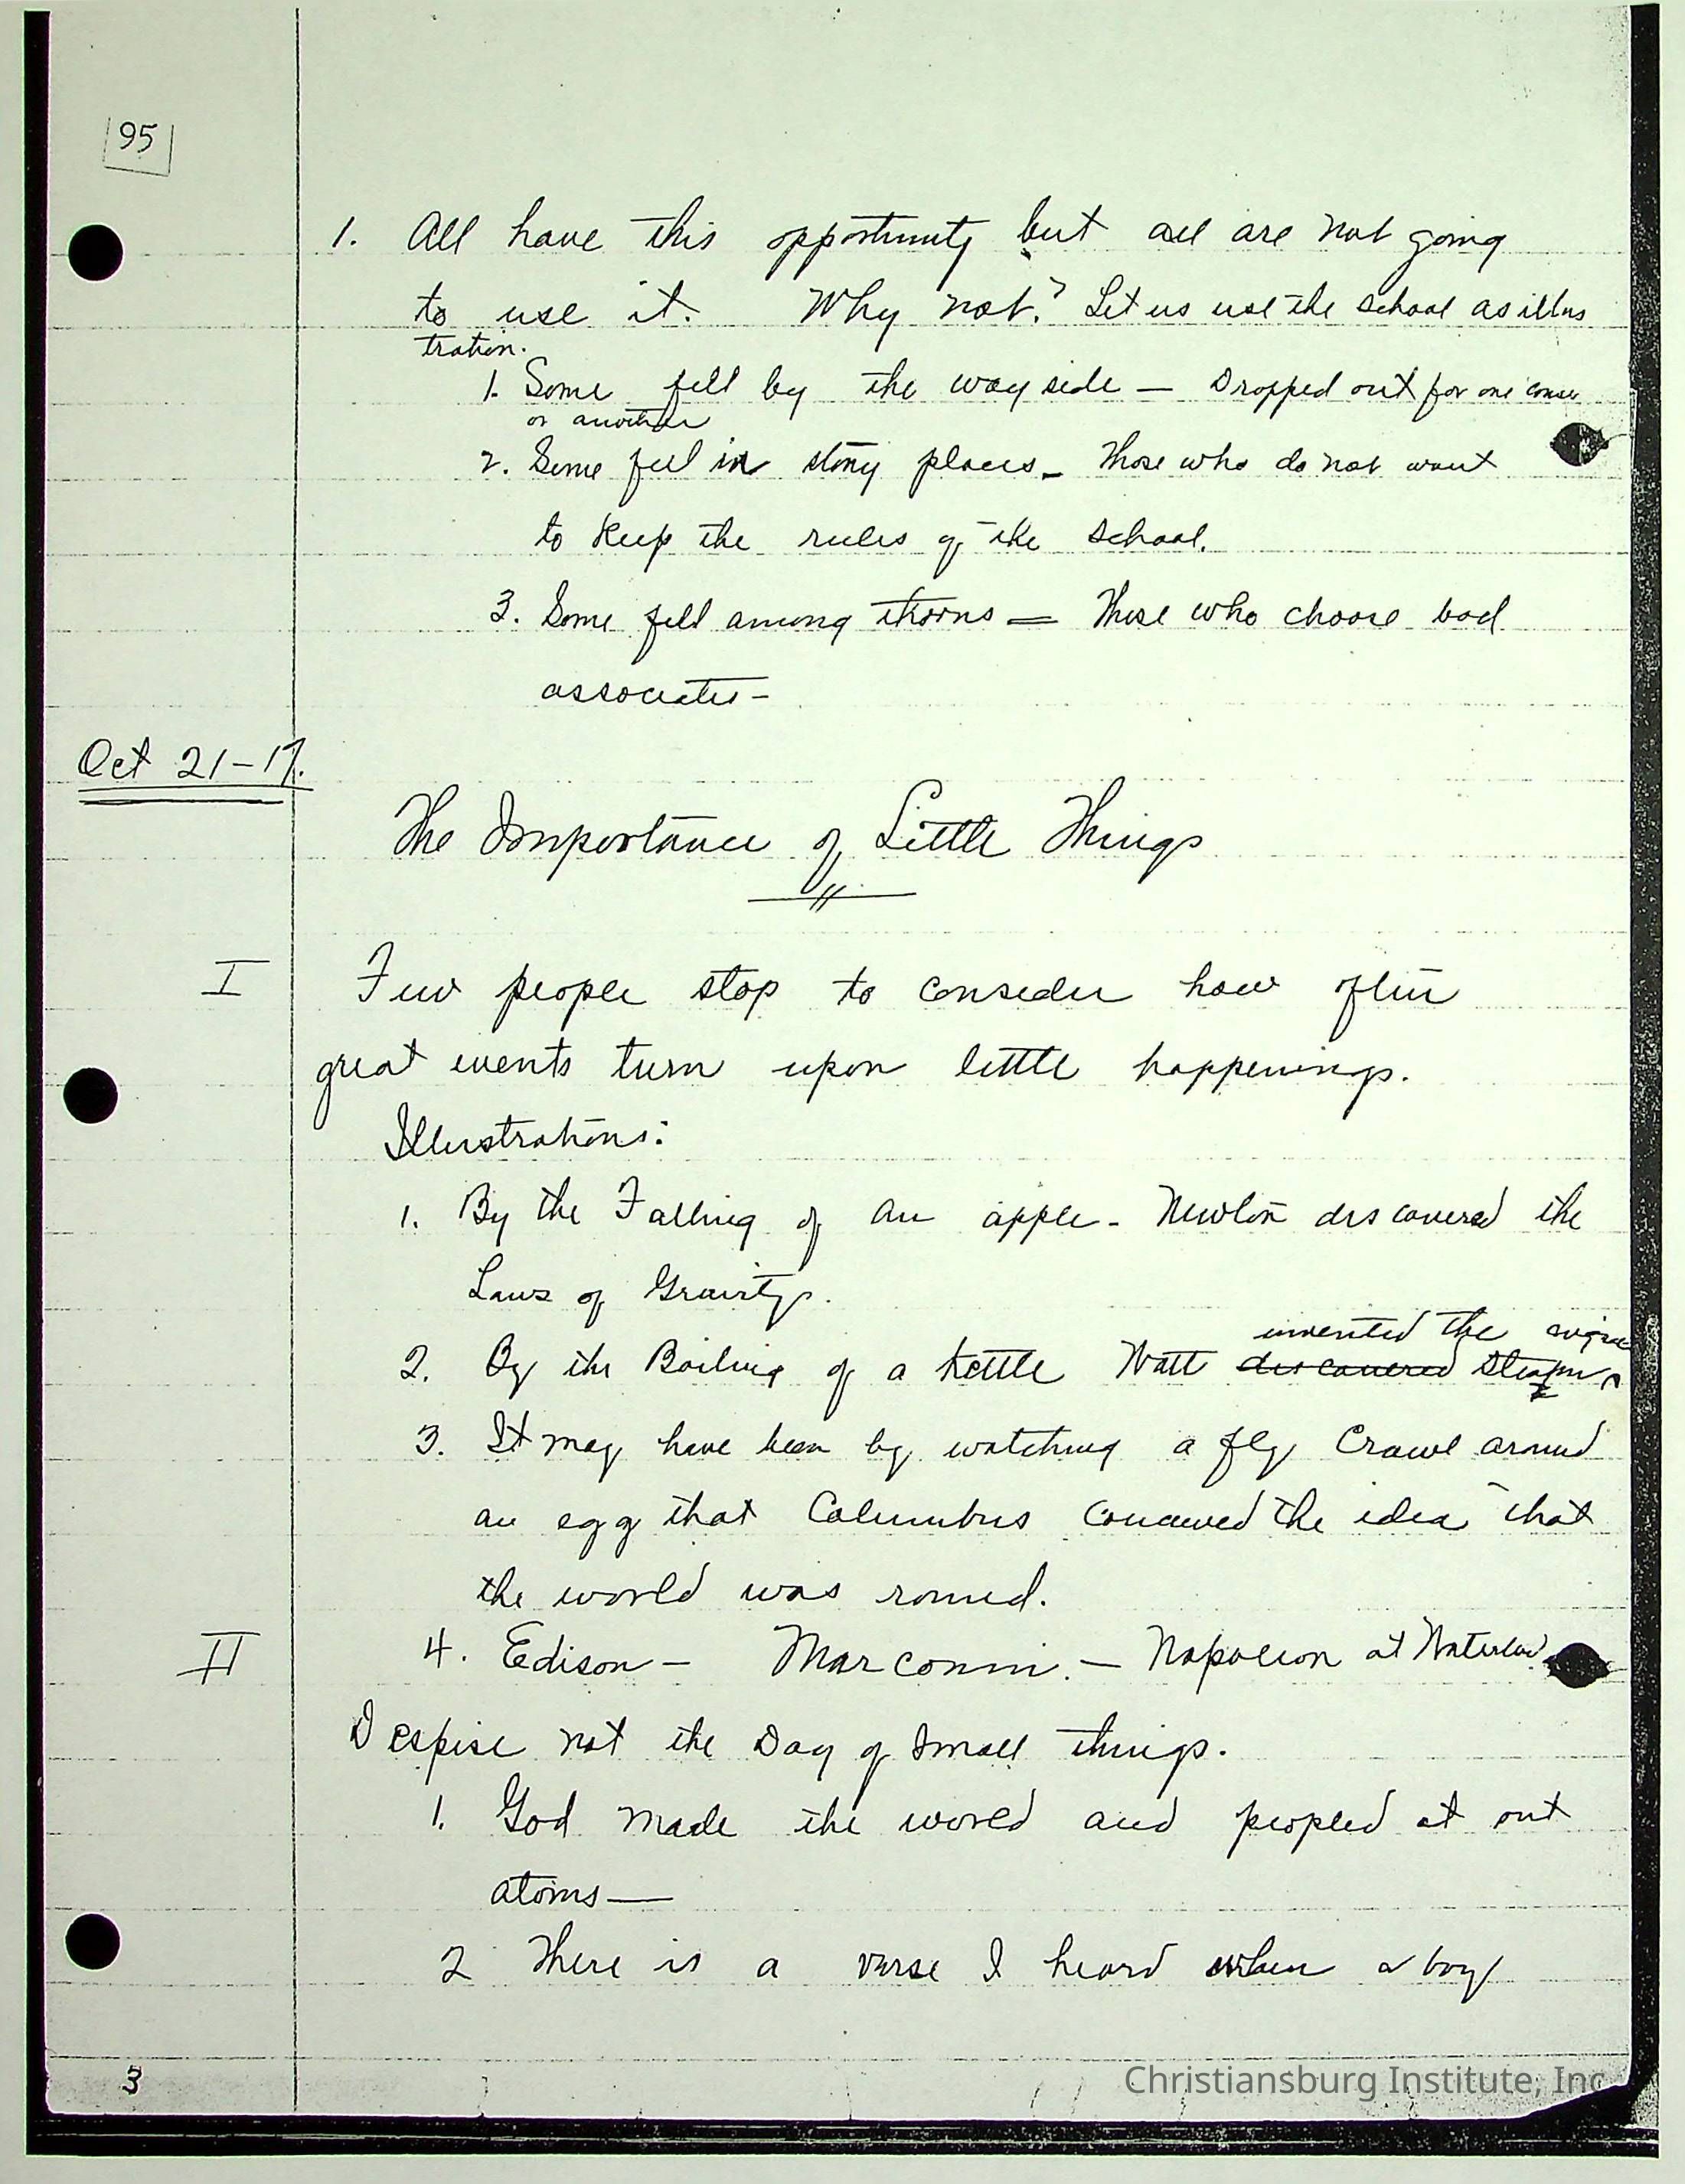 95
1. All have this opportunity but all are not going
to use it. Why not? Let us use the School as illus
tration.
1. Some fell by the way side — Dropped out for one cause
or another
2. Some fell in stony places — Those who do not want
to Keep the rules of the School.
3. Some fell among thorns — Those who choose bad
associates —
Oct 21-17.
The Importance of Little Things
I Few people stop to consider how often
great events turn upon little happenings.
Illustrations:
1. By the Falling of an apple - Newton discovered the
Laws of Gravity.
invented the engine
2. By the Boiling of a kettle Watt discovered Steam
3. It may have been by watching a fly Crawl around
an egg that Columbus conceived the idea that
the world was round.
II 4. Edison — Marconi. — Napoleon at Waterloo
Despise not the Day of Small things.
1. God made the world and peopled it out
atoms —
2 There is a verse I heard when a boy
3
Christiansburg Institute, Inc